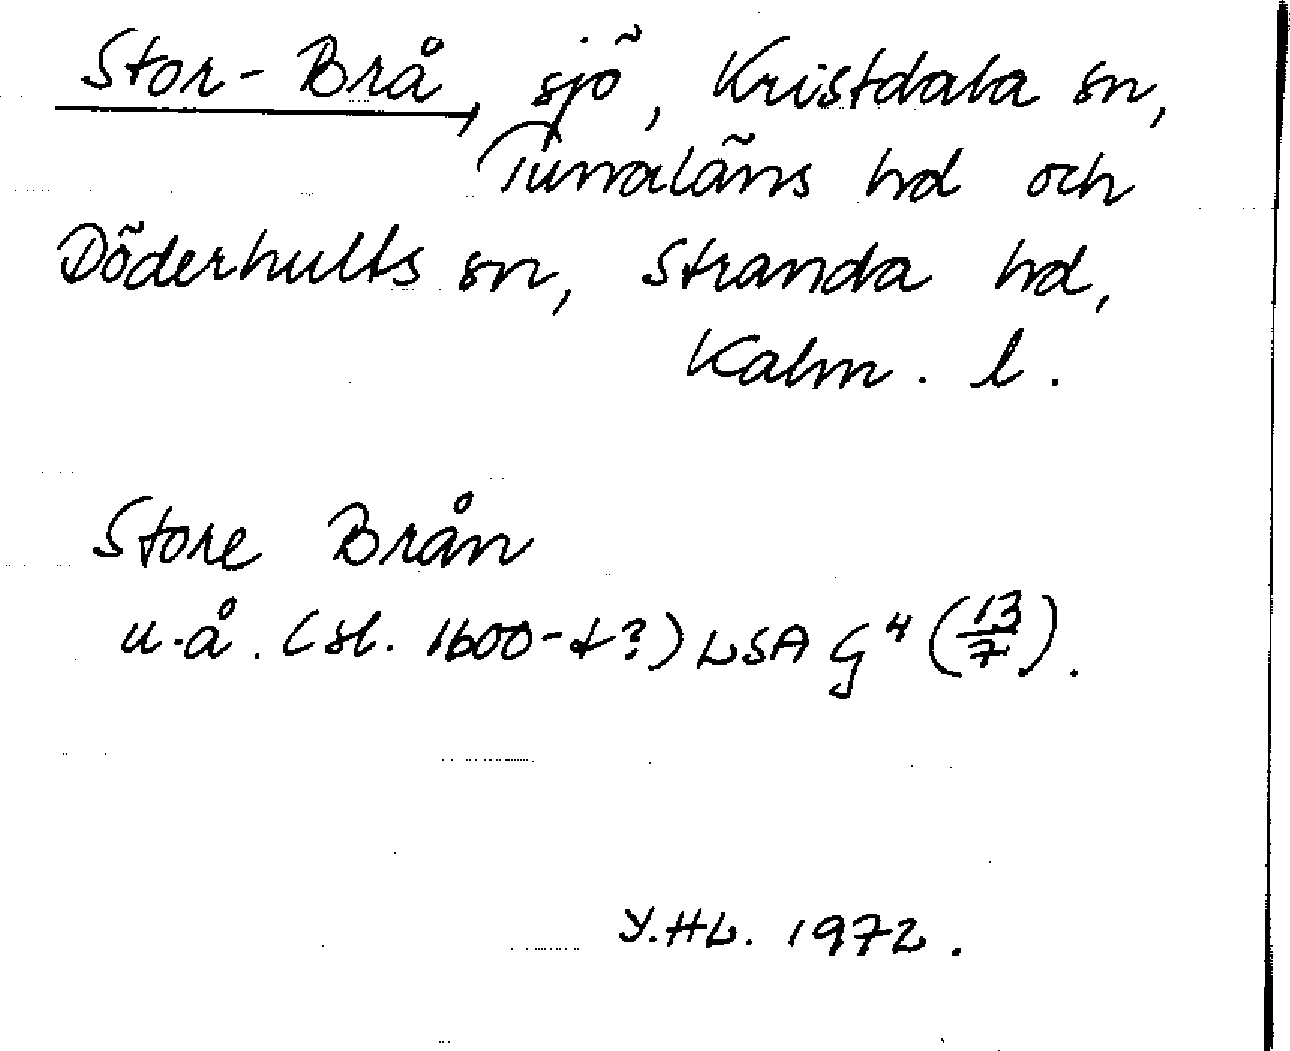 Stor-Brå, sjö, Kristdala sn,
Tunaläns hd och
Döderhults sn, Stranda hd,
Kalm. l.
Store Brån
u.å. (sl. 1600-t?) LSA G⁴ (13/7).
Y.HL. 1972.